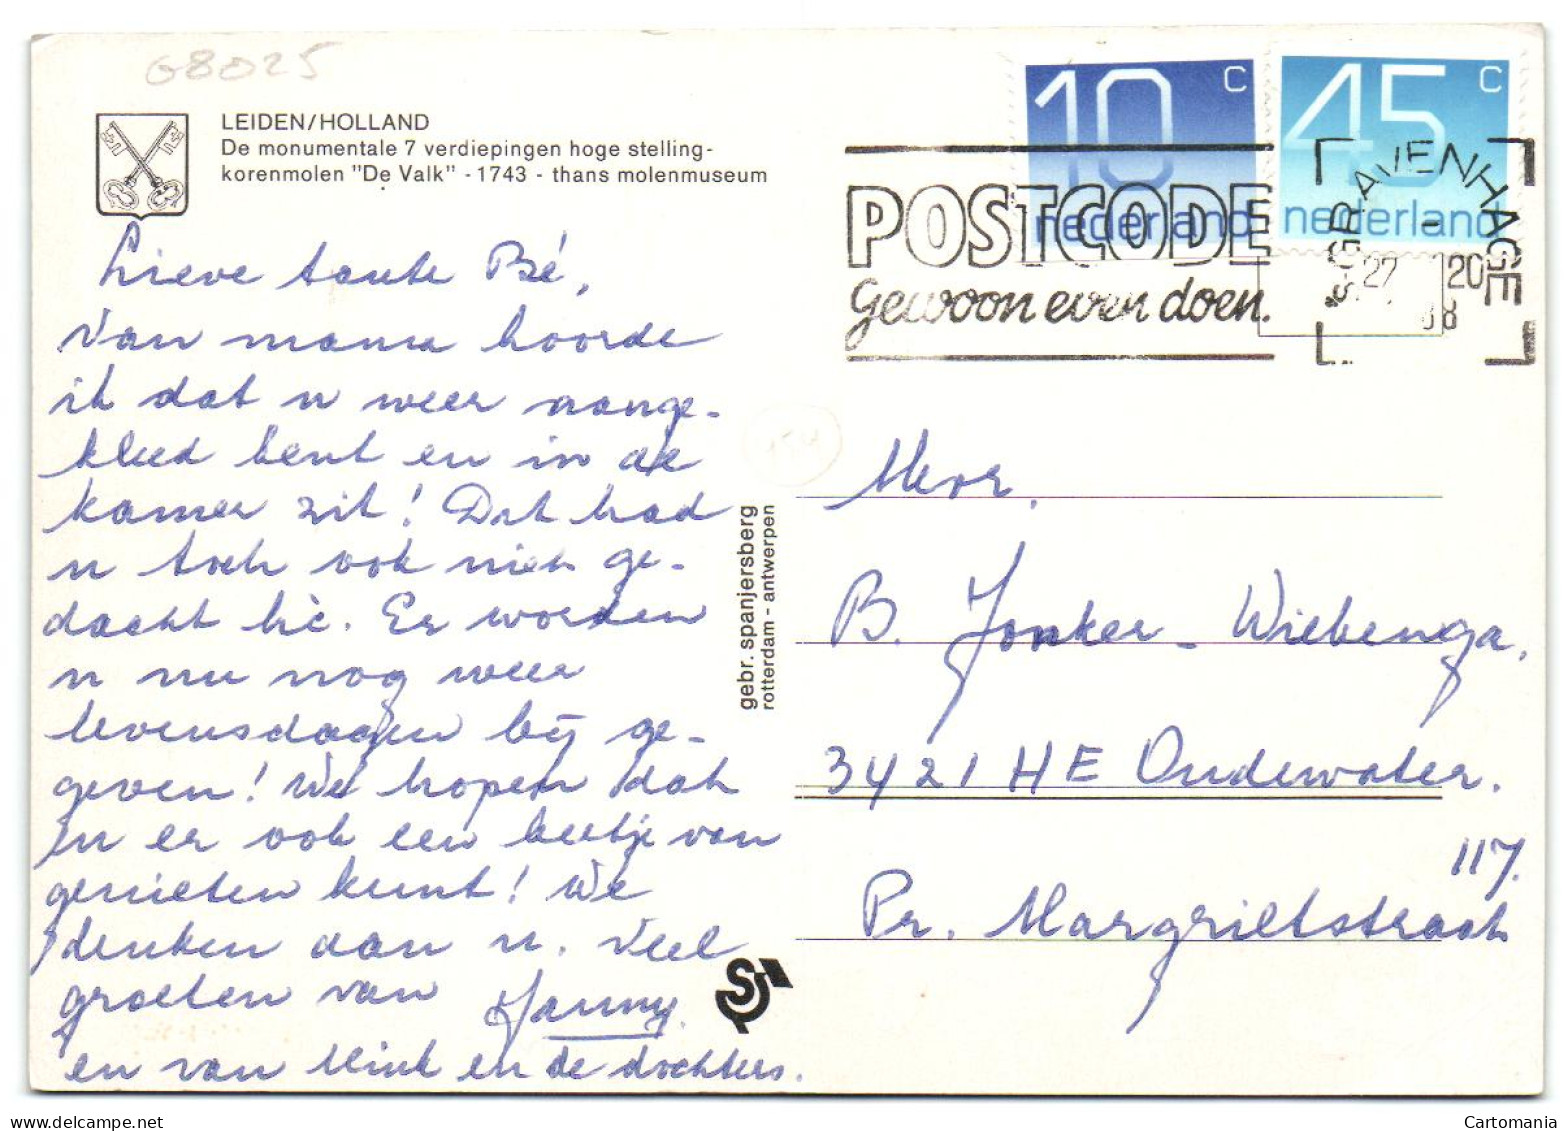 68025
LEIDEN/HOLLAND
De monumentale 7 verdiepingen hoge stelling-
korenmolen "De Valk" - 1743 - thans molenmuseum
Lieve tante Bé,
Van mama hoorde
ik dat u weer aange-
kleed bent en in de
kamer zit! Dat had
u toch ook niet ge-
dacht hè. Er worden
u nu nog weer
levensdagen bij ge-
geven! We hopen dat
u er ook een beetje van
genieten kunt! We
denken aan u. Veel
groeten van Janny
en van Henk en de dochters.
gebr. spanjersberg
rotterdam - antwerpen
10 C
nederland
45 C
nederland
POSTCODE
Gewoon even doen.
'S-GRAVENHAGE
27 20
88
154
Mevr.
B. Jonker - Wiebenga,
3421 HE Oudewater.
117.
Pr. Margrietstraat
Cartomania